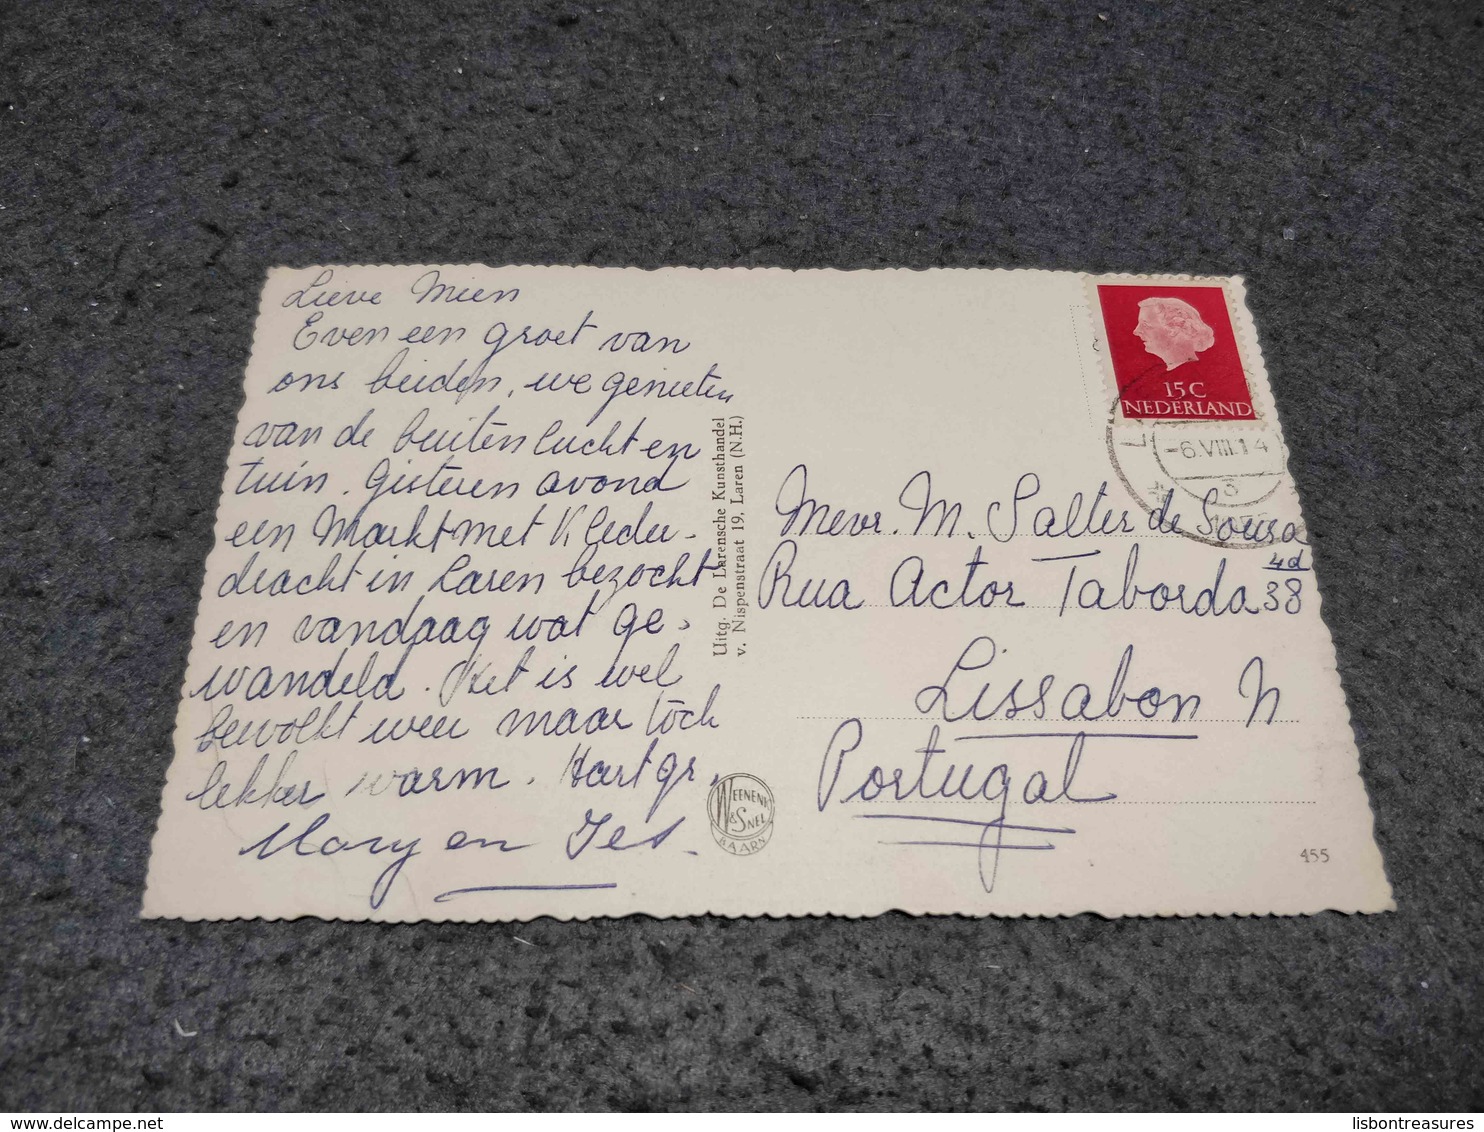 Lieve Mien
Even een groet van
ons beiden, we genieten
van de buitenlucht en
tuin. Gisteren avond
een Markt met Kleder-
dracht in Laren bezocht
en vandaag wat ge-
wandeld. Het is wel
bewolkt weer maar toch
lekker warm. Hart gr.
Mary en
Uitg. De Larensche Kunsthandel
v. Nispenstraat 19, Laren (N.H.)
WEENENK
& SNEL
BAARN
15C
NEDERLAND
-6.VIII.14
Mevr. M. Salter de Sousa
Rua Actor Taborda 38
4d
Lissabon N
Portugal
455
lisbontreasures.com